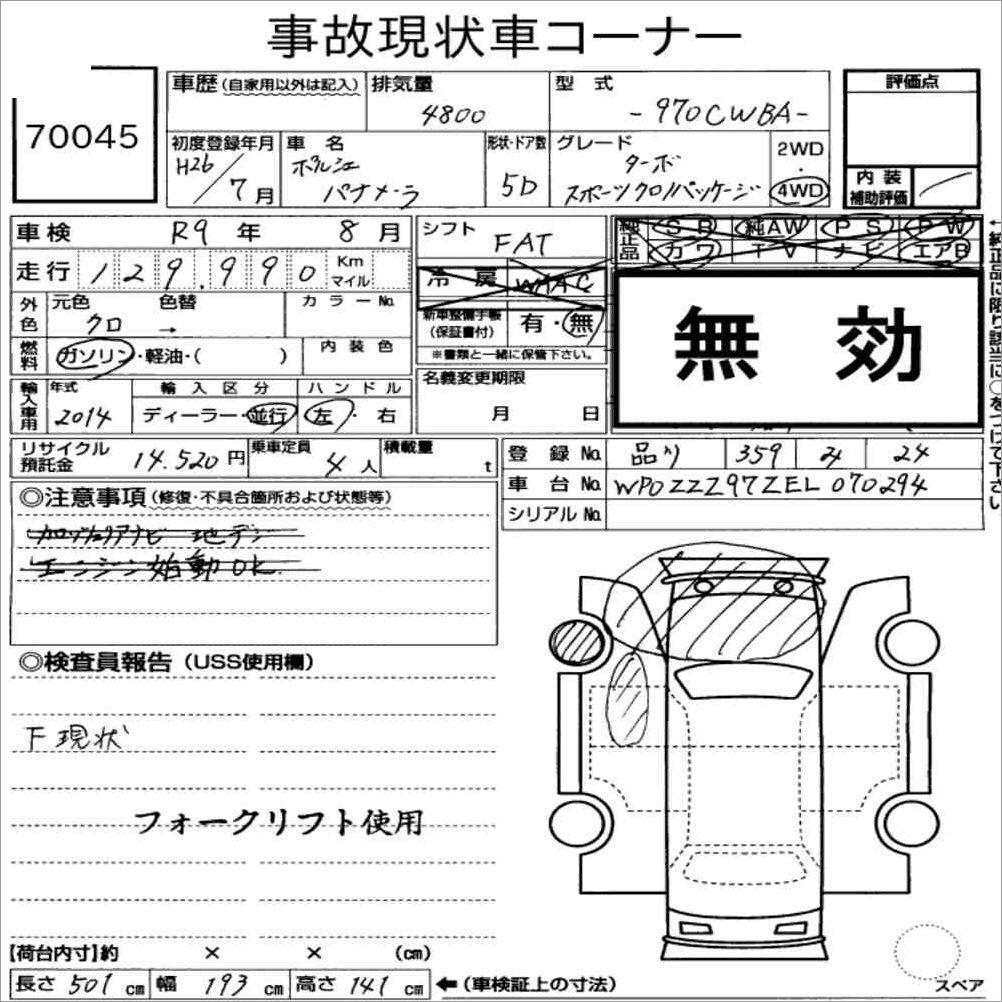 事故現状車コーナー
70045
車歴 (自家用以外は記入)
排気量
4800
型式
-970CWBA-
評価点
初度登録年月
H26/7月
車名
ポルシェ
パナメーラ
形状・ドア数
5D
グレード
ターボ
スポーツクロノパッケージ
2WD
4WD
内装
補助評価
車検 R9年 8月
シフト
FAT
純正品
SR 純AW PS PW
カワ TV ナビ エアB
走行 129,990 Km
マイル
冷房 WAC
外色
元色 色替
カラーNo.
クロ →
新車整備手帳
(保証書付)
有・無
※書類と一緒に保管下さい。
無効
燃料
ガソリン・軽油・( )
内装色
名義変更期限
月 日
輸入車用
年式
2014
輸入区分
ディーラー・並行
ハンドル
左・右
リサイクル
預託金
14.520円
乗車定員
4人
積載量
t
登録No.
359
24
車台No.
WP0ZZZ97ZEL070294
シリアルNo.
◎注意事項 (修復・不具合箇所および状態等)
地デジ
エンジン始動OK
◎検査員報告 (USS使用欄)
下現状
フォークリフト使用
【荷台内寸】約 × × (cm)
長さ 501 cm 幅 193 cm 高さ 141 cm ←(車検証上の寸法)
スペア